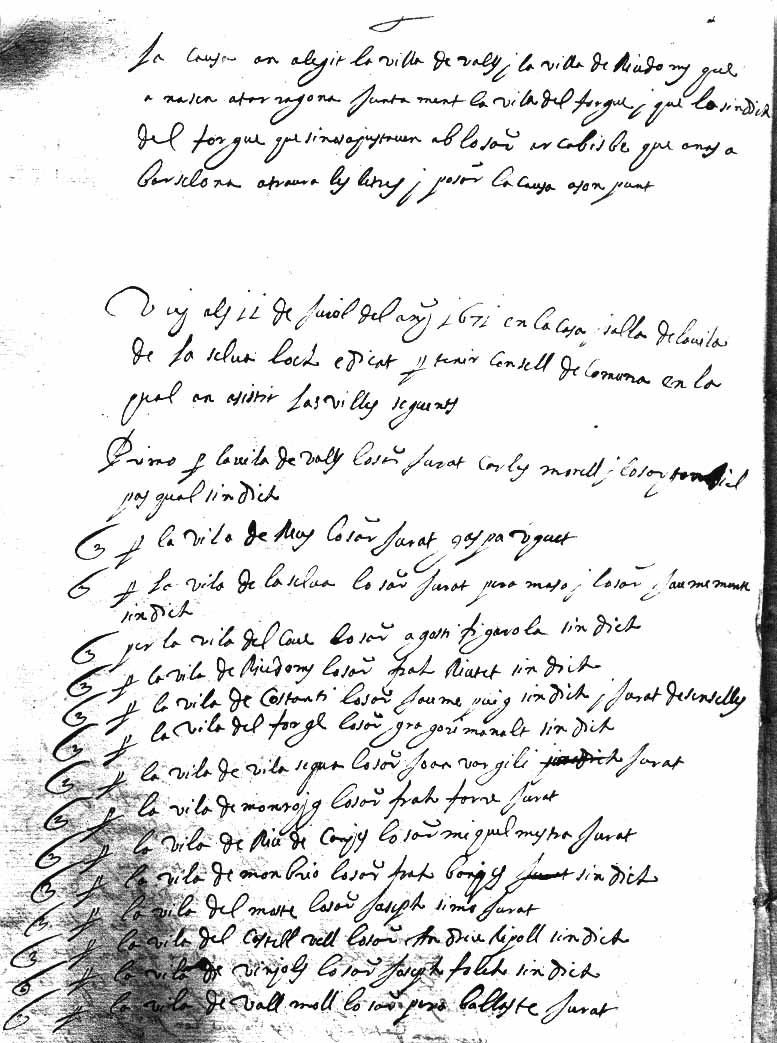 la causa an alegit la villa de valls j la villa de Riudoms que
anasen a tarragona junta ment la vila del forgue j que lo sindich
del forgue que sinos ajustauen ab lo sor arcabisbe que anas a
barselona atraura les letres j posar la causa a son punt
Vuj als 11 de Juiol del anj 1671 en la casa j salla de la vila
de la selua loch edicat per tenir consell de Comuna en lo
qual an asistit las villes seguents
Primo per la vila de valls lo sor Jurat Carles morell j lo sor
pasqual sindich
per la vila de Reus lo sor Jurat gaspar
per la vila de la selua lo sor Jurat pera maso j lo sor Jaume
sindich
per la vila del lo sor agosti figarola sindich
per la vila de Riudoms lo sor frah sindich
per la vila de Costanti lo sor Jaume puig sindich j Jurat desenselles
per la vila del forge lo sor gragori manalt sindich
per la vila de vila segua lo sor Joan vorgili sindich Jurat
per la vila de monrojg lo sor frah torre Jurat
per la vila de Riu de Canjes lo sor miquel mestra Jurat
per la vila de monbrio lo sor frah Jurat sindich
per la vila del maste lo sor Joseph simo Jurat
per la vila del Castell vell lo sor Andreu Ripoll sindich
per la vila de vinjols lo sor Joseph folch sindich
per la vila de vall moll lo sor pera balleste Jurat